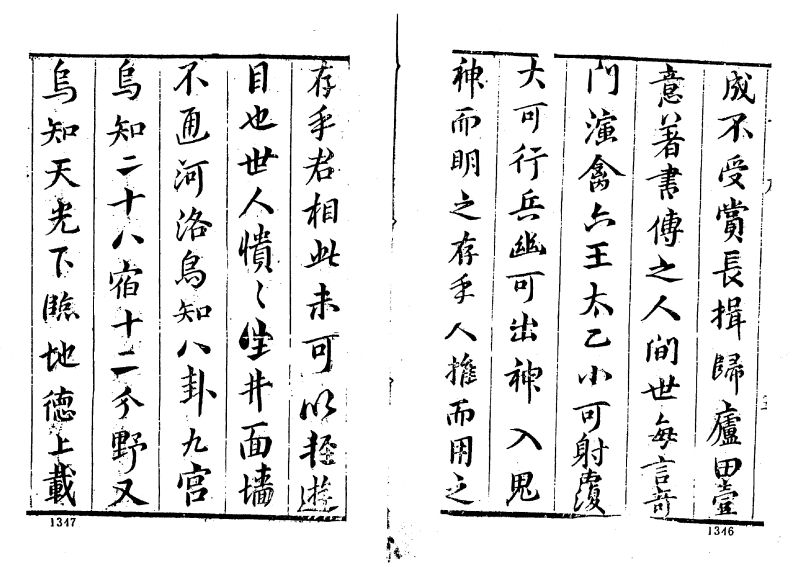 成不受賞長揖歸廬田臺
意著書傳之人間世每言奇
門演禽六壬太乙小可射覆
大可行兵幽可出神入鬼
神而明之存乎人推而用之
1346
存乎君相此未可以輕遊
目也世人憒〻坐井面墻
不通河洛烏知八卦九宮
烏知二十八宿十二分野又
烏知天光下臨地德上載
1347